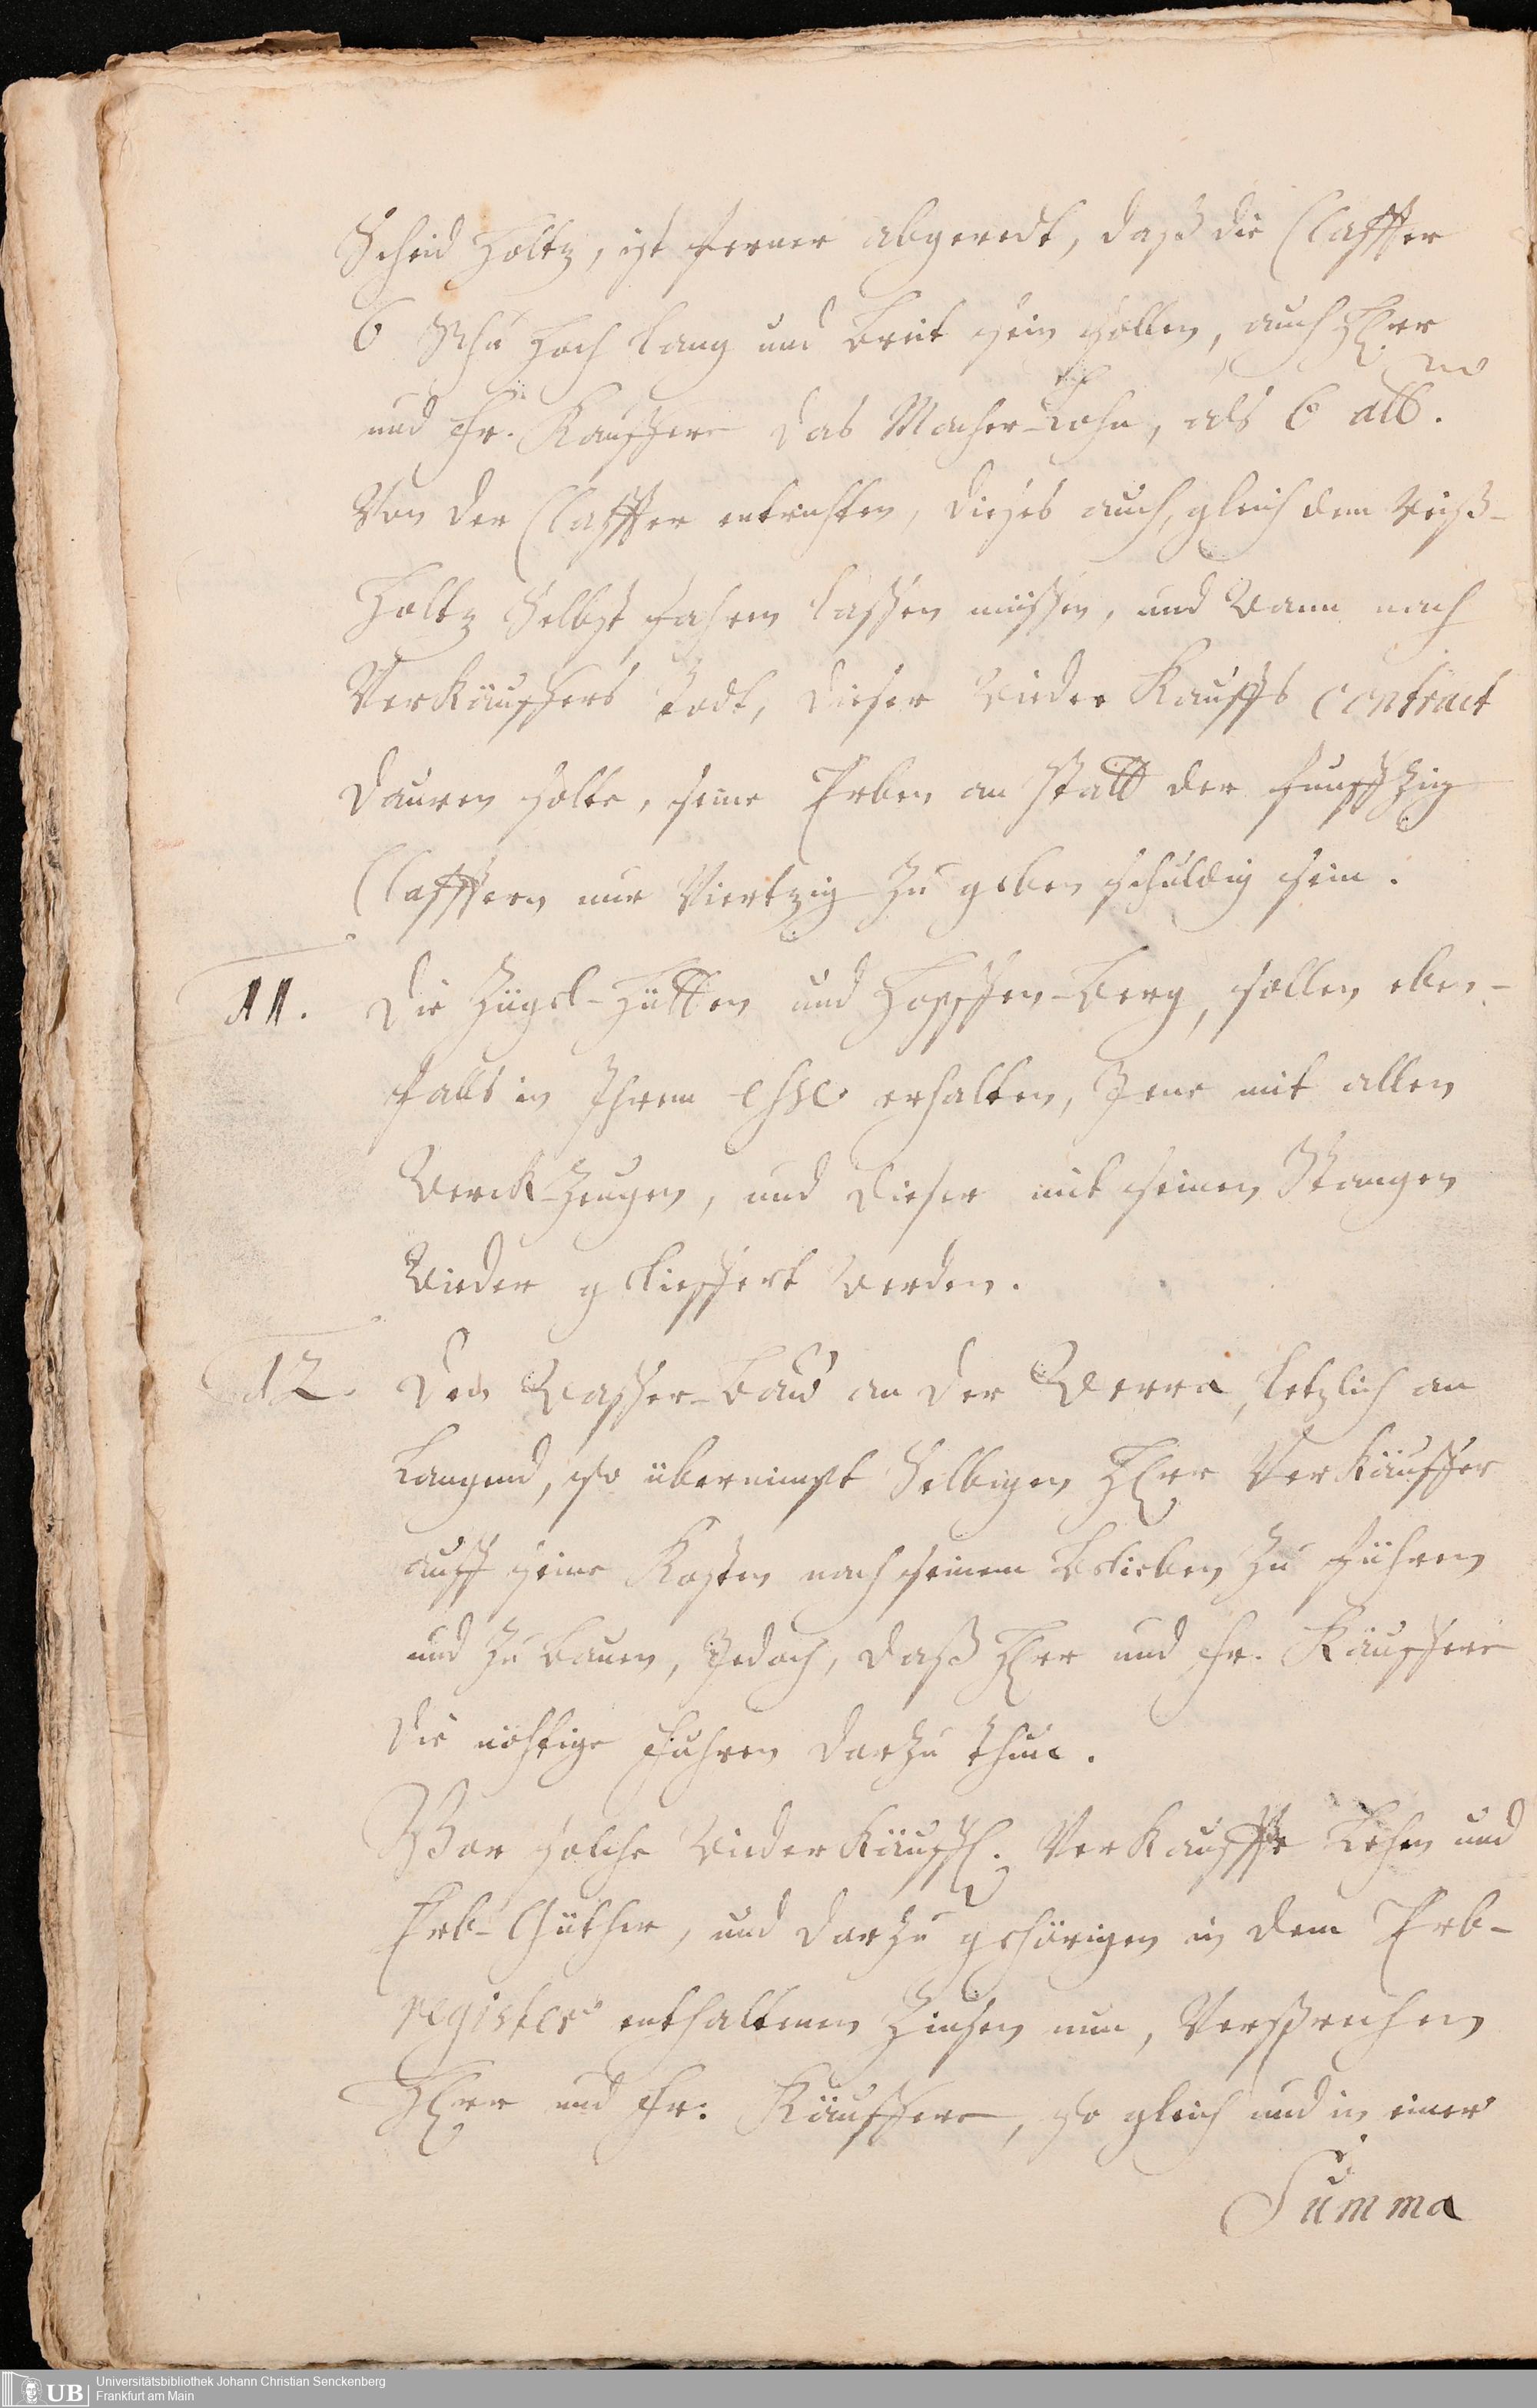 Scheid Holtz, ist ferner abgeredt, daß die Claffter
6 Schu hoch lang und breit sein sollen, auch Herr
und Fr. Kauffere das Macher-Lohn, als 6 alb.
Von der Claffter entrichten, dieses auch, gleich dem Reiß-
Holtz Selbst fahren lassen müssen, und Wann nach
Verkäuffers Todt, dieser Wieder Kauffs contract
dauren solte, seine Erben an statt der funffzig
Clafftern nur Viertzig zu geben schuldig sein.
11. Die Zügel-Hütten und Hopffen-Berg, sollen eben-
falls in Ihrem esse erhalten, Jene mit allen
Werck-Zeugen, und dieser mit seinen Stangen
Wieder gelieffert Werden.
12. Den Wasser-Bau an der Werra, letzlich an
Langend, so übernimbt Selbigen Herr Verkäuffer
auff seine Kosten nach seinem Belieben zu führen
und zu bauen, Jedoch, daß Herr und Fr. Käuffere
die nöhtige Fuhren darzu thun.
Vor solche Wiederkäuffl. Verkauffte Lehn und
Erb-Güther, und darzu gehörigen in dem Erb-
register enthaltenen Zinsen nun, Versprechen
Herr und Fr. Käuffere, so gleich und in einer
Summa
UB Universitätsbibliothek Johann Christian Senckenberg
Frankfurt am Main